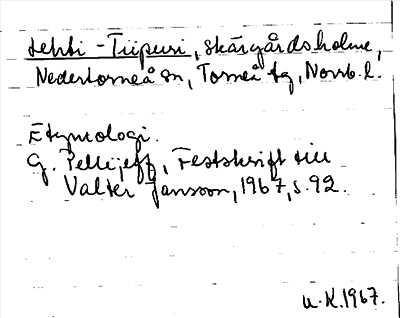 Lehti-Tiipuri, skärgårdsholme,
Nedertorneå sn, Torneå tg, Norrb. l.
Etymologi.
G. Pellijeff, Festskrift till
Valter Jansson, 1967, s. 92.
U. K. 1967.